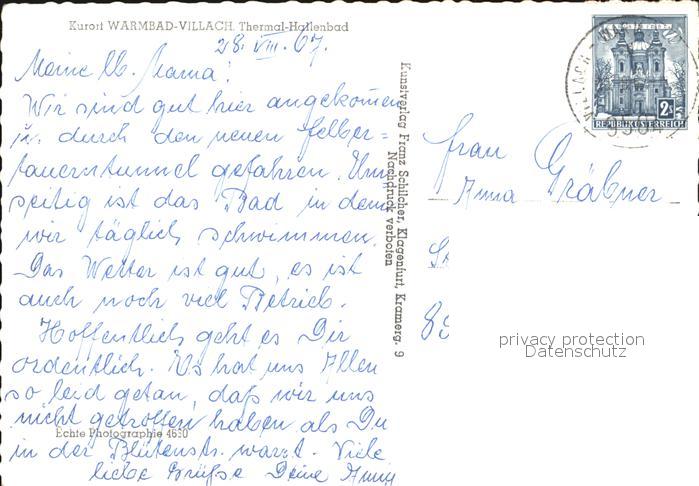 Kurort WARMBAD-VILLACH. Thermal-Hallenbad
28. VIII. 67.
Meine lb. Mama!
Wir sind gut hier angekommen
u. durch den neuen Felber=
tauerntunnel gefahren. Um
seitig ist das Bad in dem
wir täglich schwimmen.
Das Wetter ist gut, es ist
auch noch viel Betrieb.
Hoffentlich geht es Dir
ordentlich. Es hat uns Allen
so leid getan, daß wir uns
nicht getroffen haben als Du
Echte Photographie 4630
in der Blütenstr. warst. Viele
liebe Grüße Deine
Kunstverlag Franz Schilcher, Klagenfurt, Kramerg. 9
Nachdruck verboten
2S
REPUBLIK ÖSTERREICH
VILLACH
9504
Frau
Anna Gräbner
privacy protection
Datenschutz